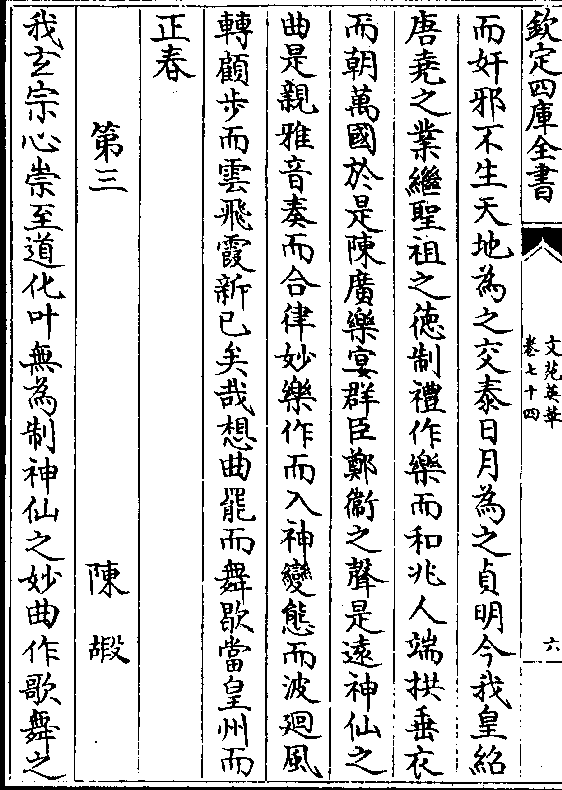 欽定四庫全書
文苑英華
卷七十四
六
而奸邪不生天地為之交泰日月為之貞明今我皇紹
唐堯之業繼聖祖之徳制禮作樂而和兆人端拱垂衣
而朝萬國於是陳廣樂宴群臣鄭衞之聲是逺神仙之
曲是親雅音奏而合律妙樂作而入神變態而波廻風
轉顧歩而雲飛霞新已矣哉想曲罷而舞歇當皇州而
正春
第三 陳嘏
我玄宗心崇至道化叶無為制神仙之妙曲作歌舞之